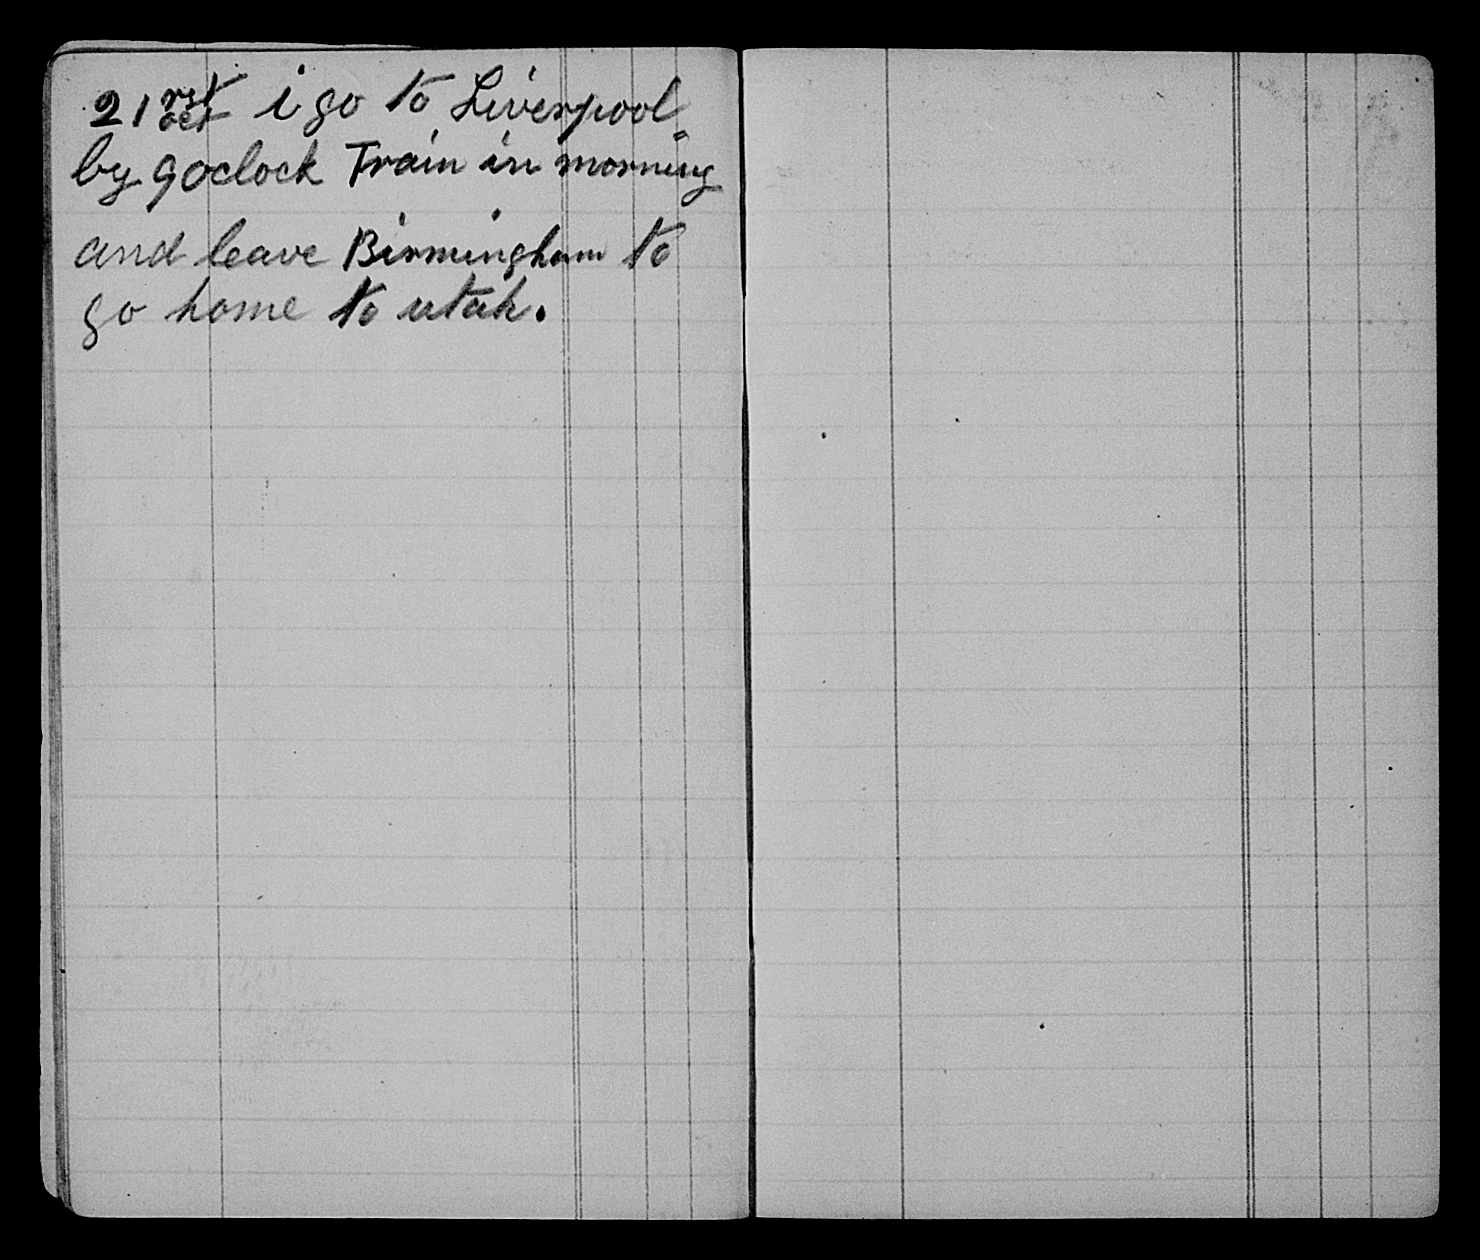 21 rst oct i go to Liverpool
by 9 oclock Train in morning
and leave Birmingham to
go home to utah.